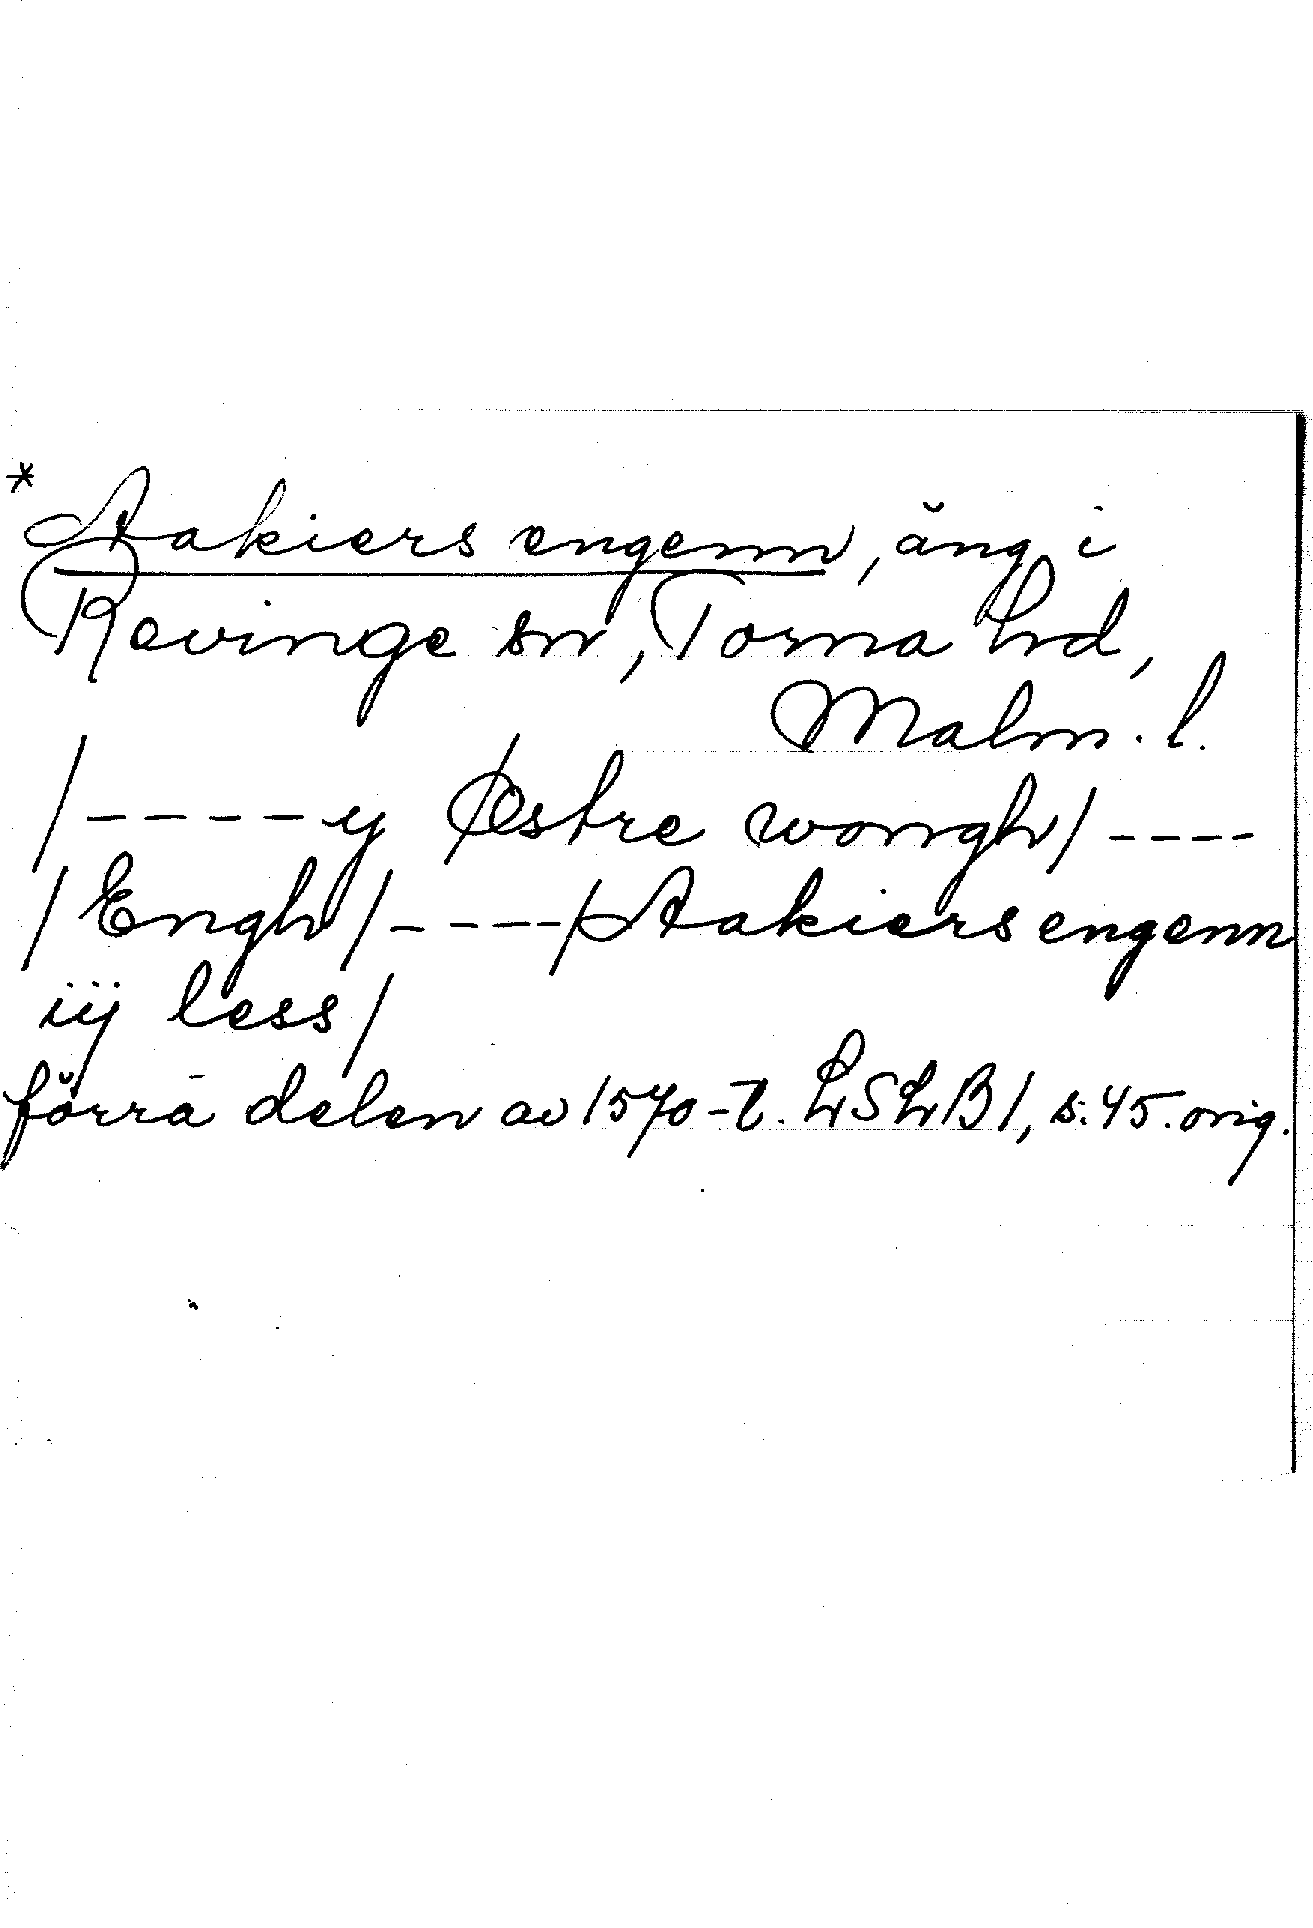 * Aakiers engenn, äng i
Revinge sn, Torna hd,
Malm. l.
/----y Østre wongh/----
/Engh/----/Aakiers engenn
iij less/
förra delen av 1570-t. LSLB1, s. 45. orig.